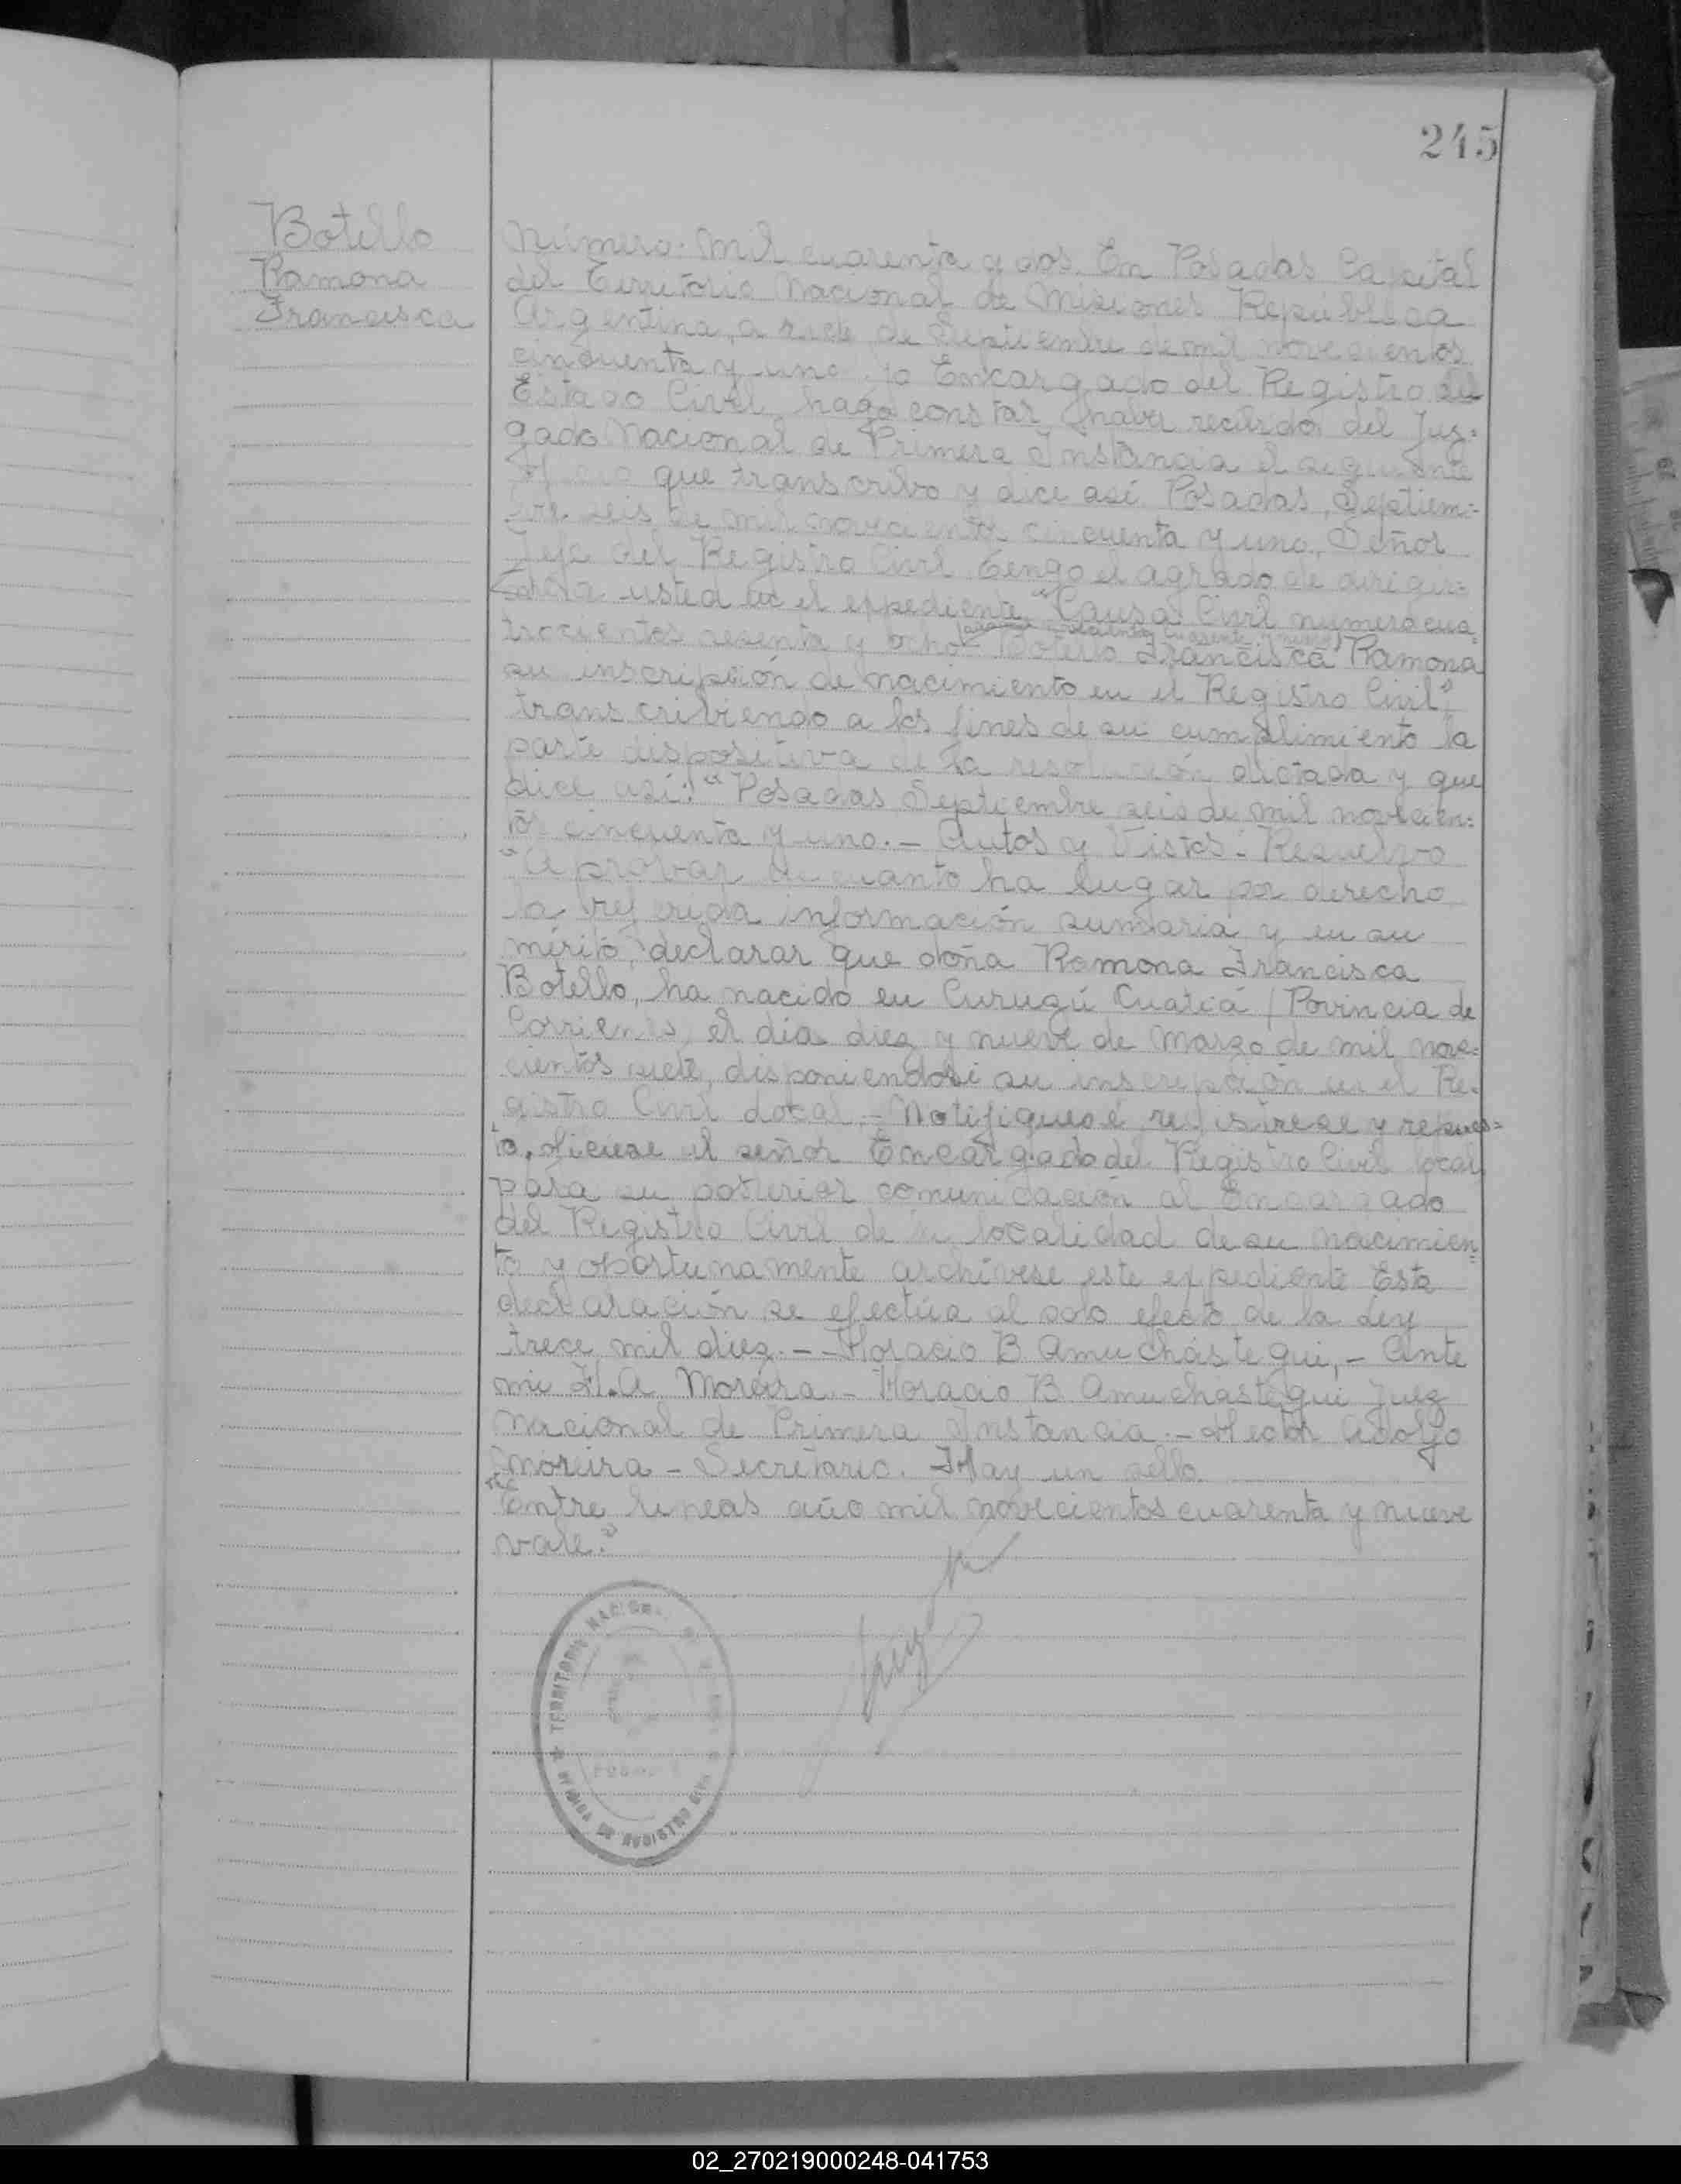 245
Botello
Ramona
Francisca
Número mil cuarenta y dos. En Posadas Capital
del Territorio Nacional de Misiones República
Argentina, a siete de Septiembre de mil novecientos
cincuenta y uno. yo Encargado del Registro del
Estado Civil, hago constar haber recibido del Juz=
gado Nacional de Primera Instancia el siguiente
Oficio que transcribo y dice así. Posadas, Septiem=
bre seis de mil novecientos cincuenta y uno, Señor
Jefe del Registro Civil. Tengo el agrado de dirigir=
me a usted en el expediente "Causa Civil numero cua=
año mil novecientos cuarenta y nueve
trocientos sesenta y ocho- Botello Francisca Ramona
su inscripción de nacimiento en el Registro Civil",
transcribiendo a los fines de su cumplimiento la
parte dispositiva de la resolución dictada y que
dice así: "Posadas Septiembre seis de mil novecien=
tos cincuenta y uno.- Autos y Vistos- Resuelvo
"Aprobar en cuanto ha lugar por derecho
la referida información sumaria y en su
mérito, declarar que doña Ramona Francisca
Botello, ha nacido en Curuzú Cuatiá / Povincia de
Corrientes, el día diez y nueve de Marzo de mil nove=
cientos siete, disponiendose su inscripción en el Re=
gistro Civil Local.- Notifiquese, registrese y repues=
to, oficiese al señor Encargado del Registro Civil local
para su posterior comunicación al Encargado
del Registro Civil de la localidad de su nacimien=
to y oportunamente archivese este expediente Esta
declaración se efectúa al solo efecto de la Ley
trece mil diez.-- Horacio B. Amuchástegui,- Ante
mi H.A Moreira.- Horacio B. Amuchástegui Juez
Nacional de Primera Instancia.- Hector Adolfo
Moreira - Secretario. Hay un sello
Entre lineas año mil novecientos cuarenta y nueve
vale."
TERRITORIO NACIONAL
REGISTRO CIVIL
02_270219000248-041753